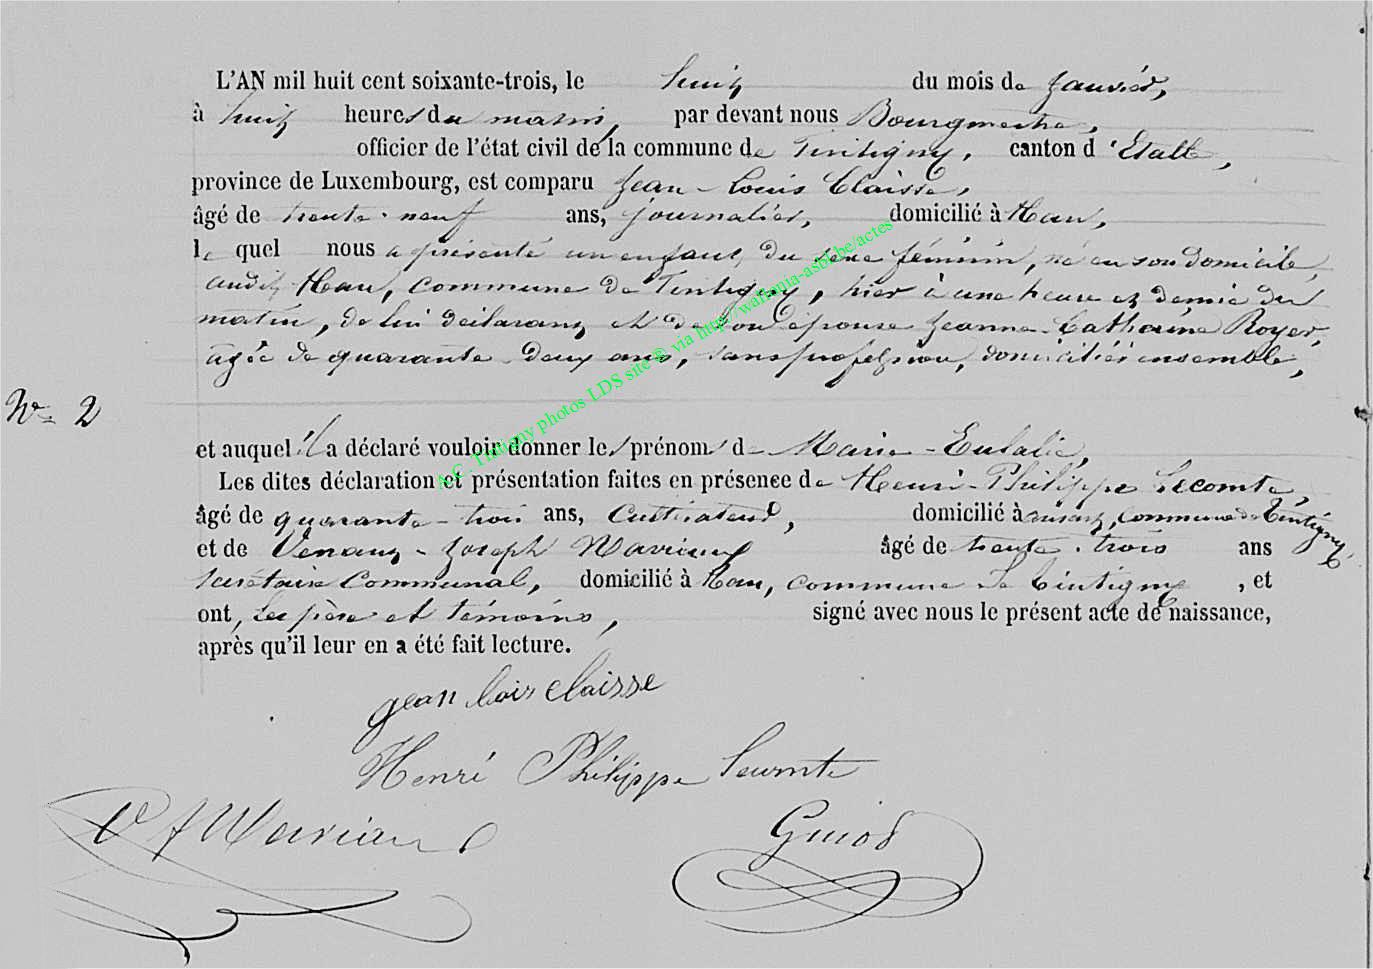 L'AN mil huit cent soixante-trois, le huit du mois de Janvier,
à huit heures du matin, par devant nous Bourgmestre,
officier de l'état civil de la commune de Tintigny, canton d'Etalle,
province de Luxembourg, est comparu Jean-Louis Claisse,
âgé de trente-neuf ans, journalier, domicilié à Han,
le quel nous a présenté un enfant, du sexe féminin, né en son domicile,
audit Han, commune de Tintigny, hier à une heure et demie du
matin, de lui déclarant et de son épouse Jeanne-Catherine Royer,
agée de quarante-deux ans, sans profession, domiciliés ensemble,
N° 2
et auquel il a déclaré vouloir donner les prénoms de Marie-Eulalie,
Les dites déclaration et présentation faites en présence de Henri-Philippe Lecomte,
âgé de quarante-trois ans, cultivateur, domicilié à commune de Tintigny,
et de Venant-Joseph Mavriand âgé de trente-trois ans
secrétaire Communal, domicilié à Han, commune de Tintigny, et
ont, les père et témoins, signé avec nous le présent acte de naissance,
après qu'il leur en a été fait lecture.
jean louis claisse
Henri Philippe Lecomte
V J
Guiot
A.C. Tintigny photos LDS site © via http://wallonia-asbl.be/actes